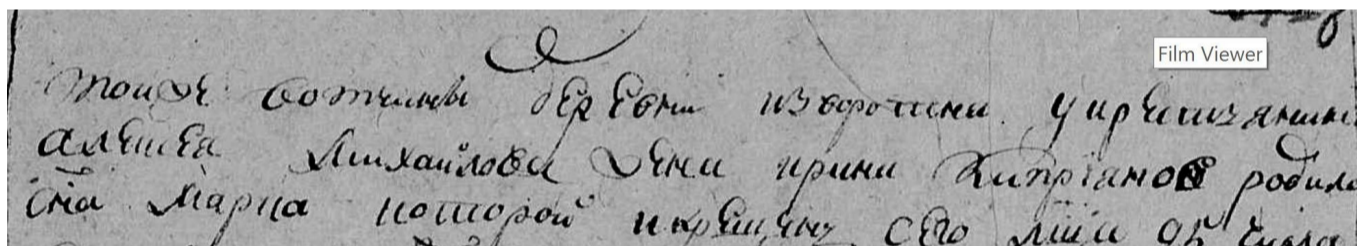 Film Viewer
тойже вотчины деревни изворотни у крестьянина
алексея михайлова жени ирини киприановой родила
сна мариа которой и крещенъ сего мца числа